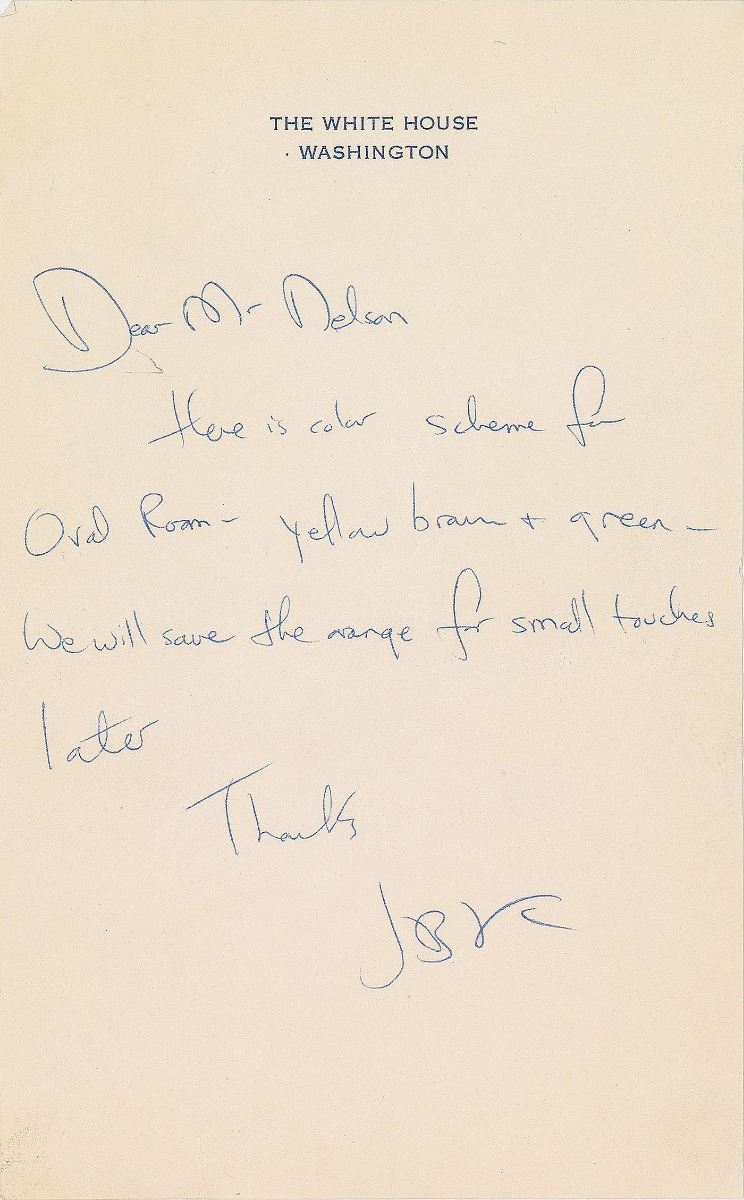 THE WHITE HOUSE
WASHINGTON
Dear Mr Nelson
Here is color scheme for
Oval Room - yellow brown + green -
We will save the orange for small touches
later
Thanks
JBK